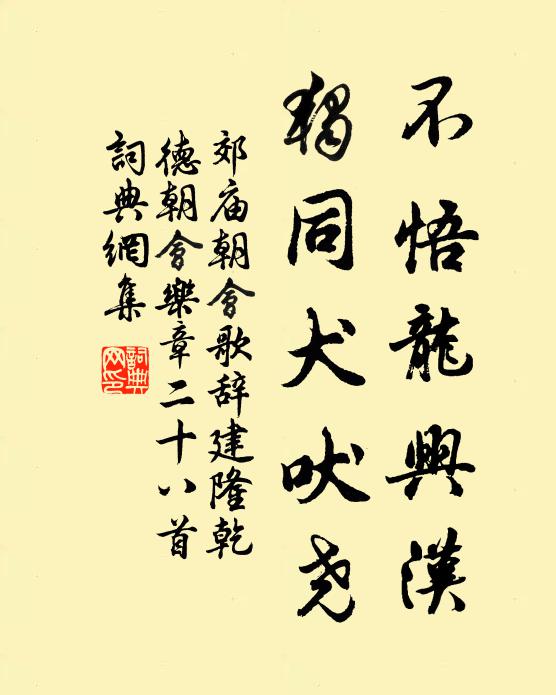 不悟龍興漢
猶同犬吠尧
郊庙朝會歌辞建隆乾
德朝會樂章二十八首
詞典網集
詞典網印